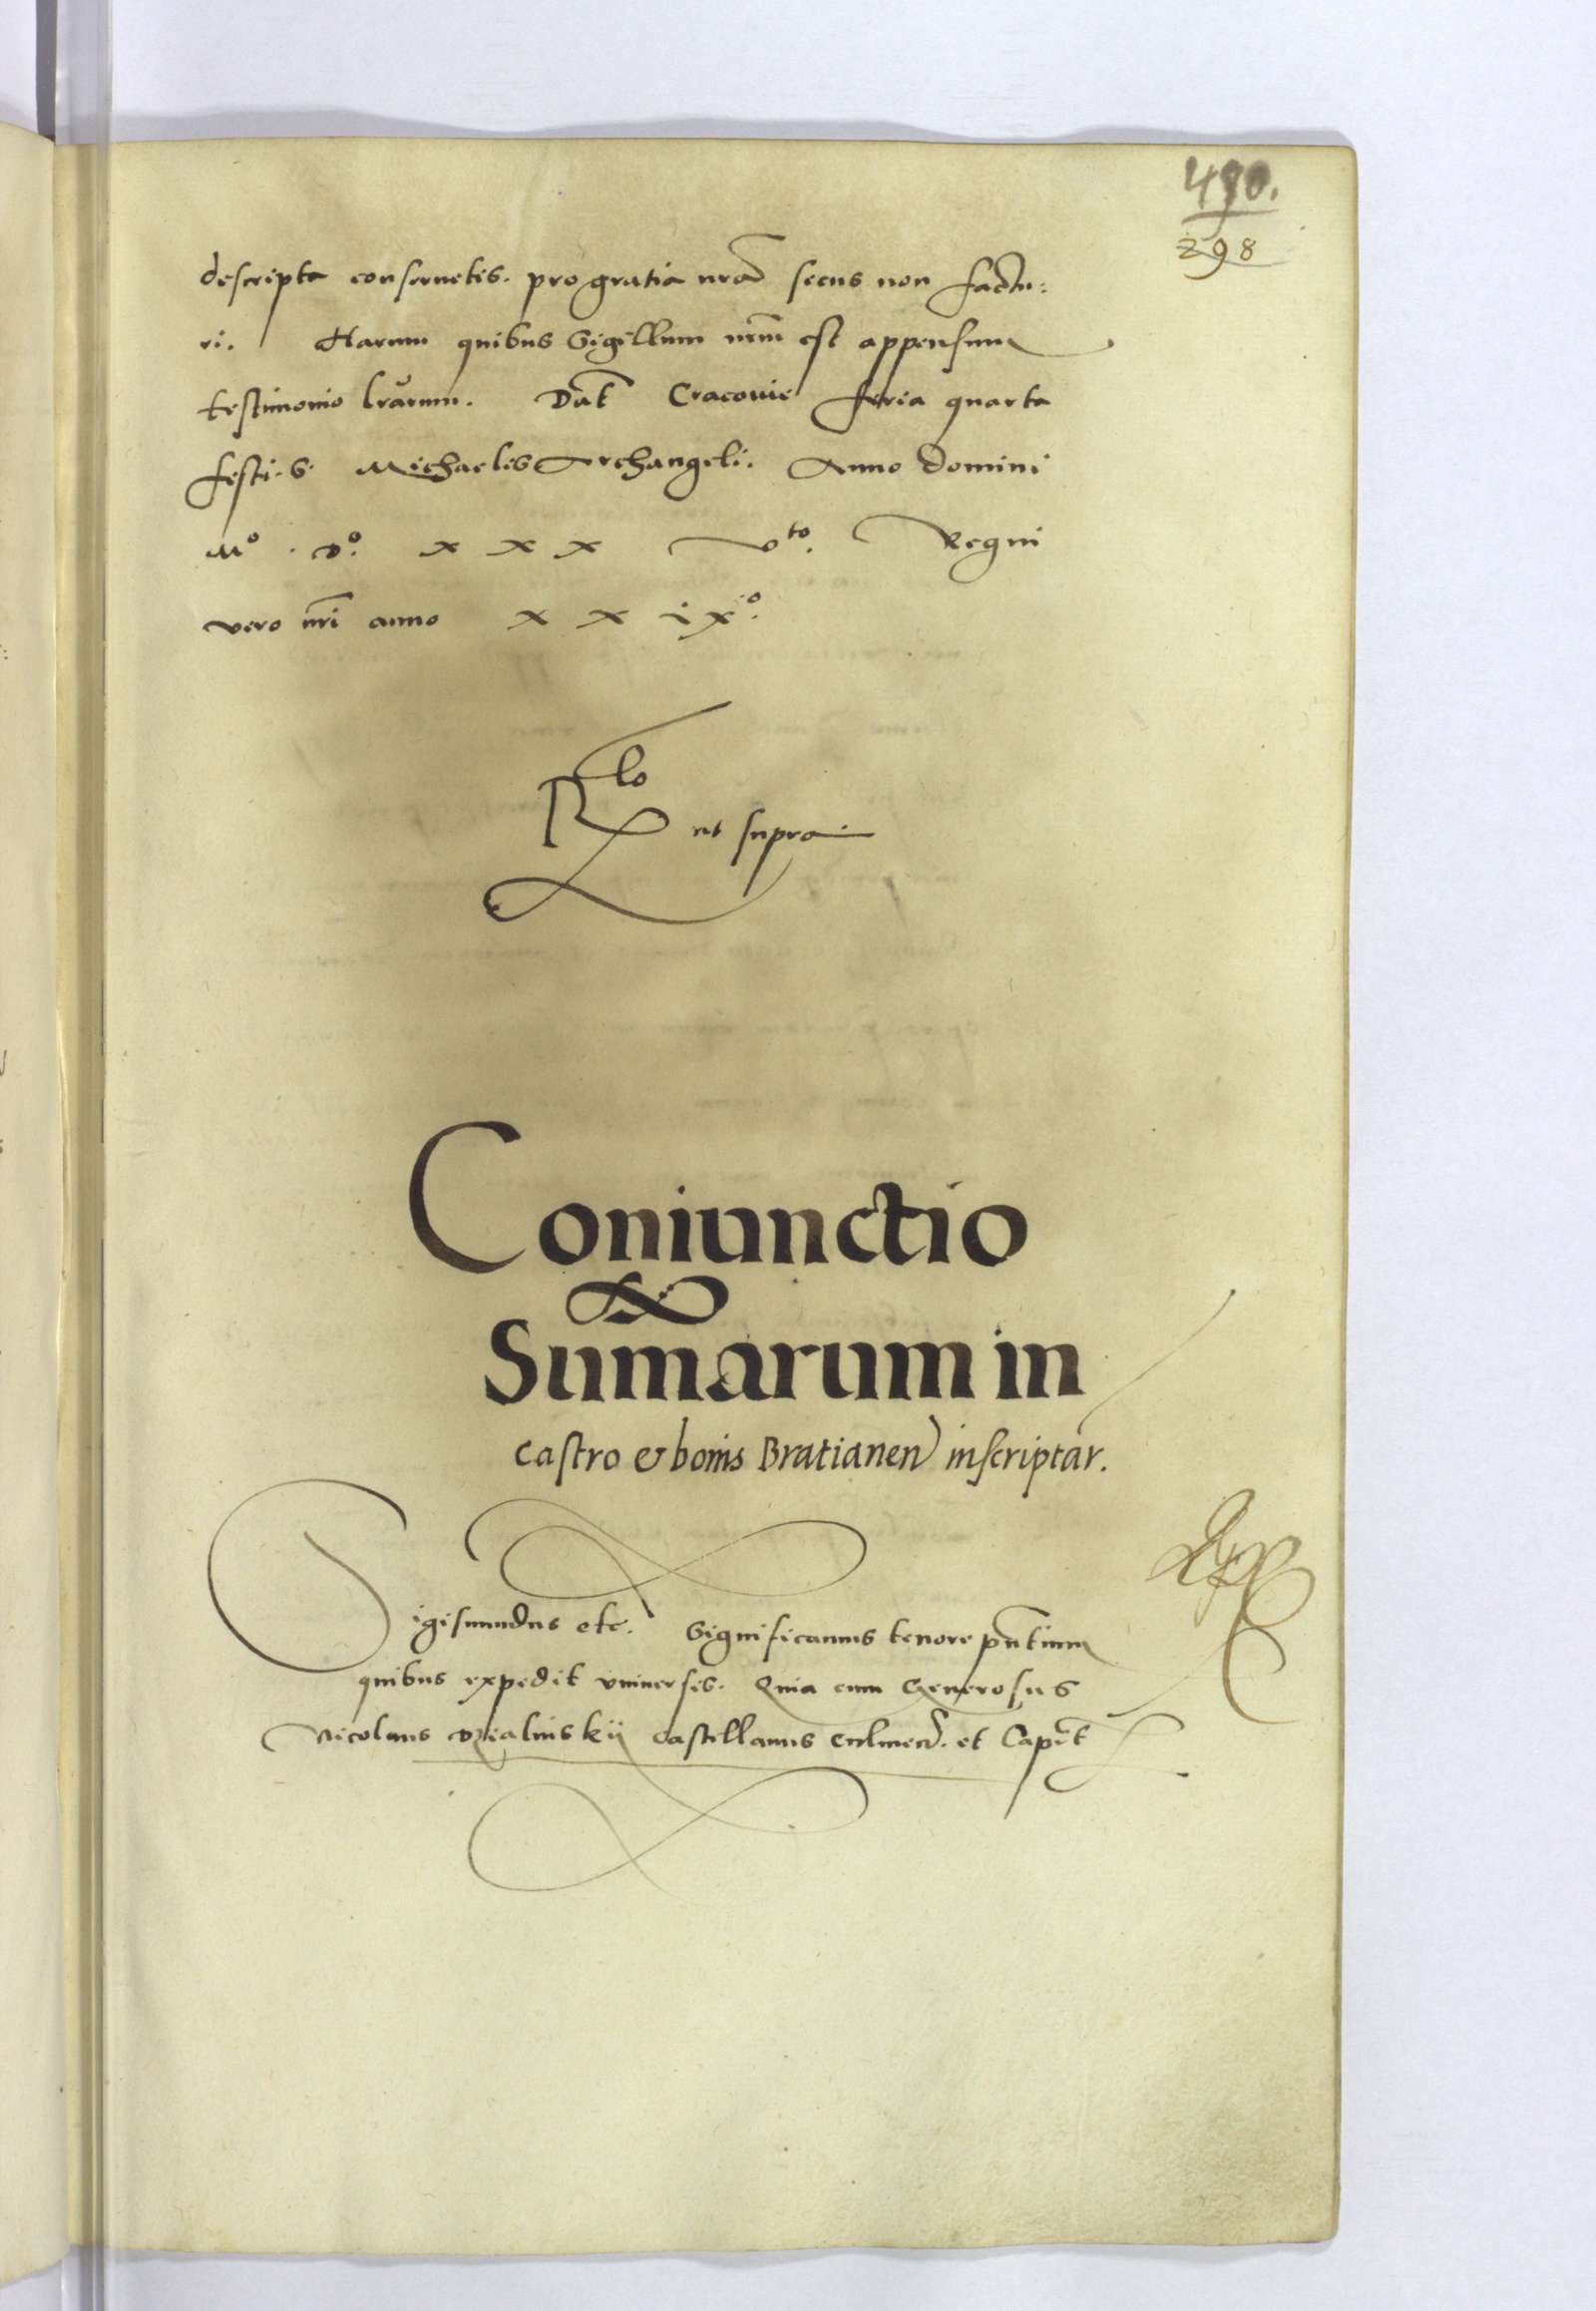 490.
298
descripta conservetis. pro gratia nrā secus non factu:
ri. Harum quibus Sigillum nrm̄ est appensum
testimonio lrārum. Dat̄ Cracovie feria quarta
festi. S. Michaelis Archangeli. Anno domini
Mº. Dº. x x x vto. Regni
vero nrī anno x x ixº.
Rlo ut supra
Coniunctio
Sumarum in
castro & bonis Bratianen inscriptar.
Sigismundus etc. Significamus tenore pntium
quibus expedit universis. Quia cum Generosus
Nicolaus Dzialinskij Castellanus Culmen. et Capit